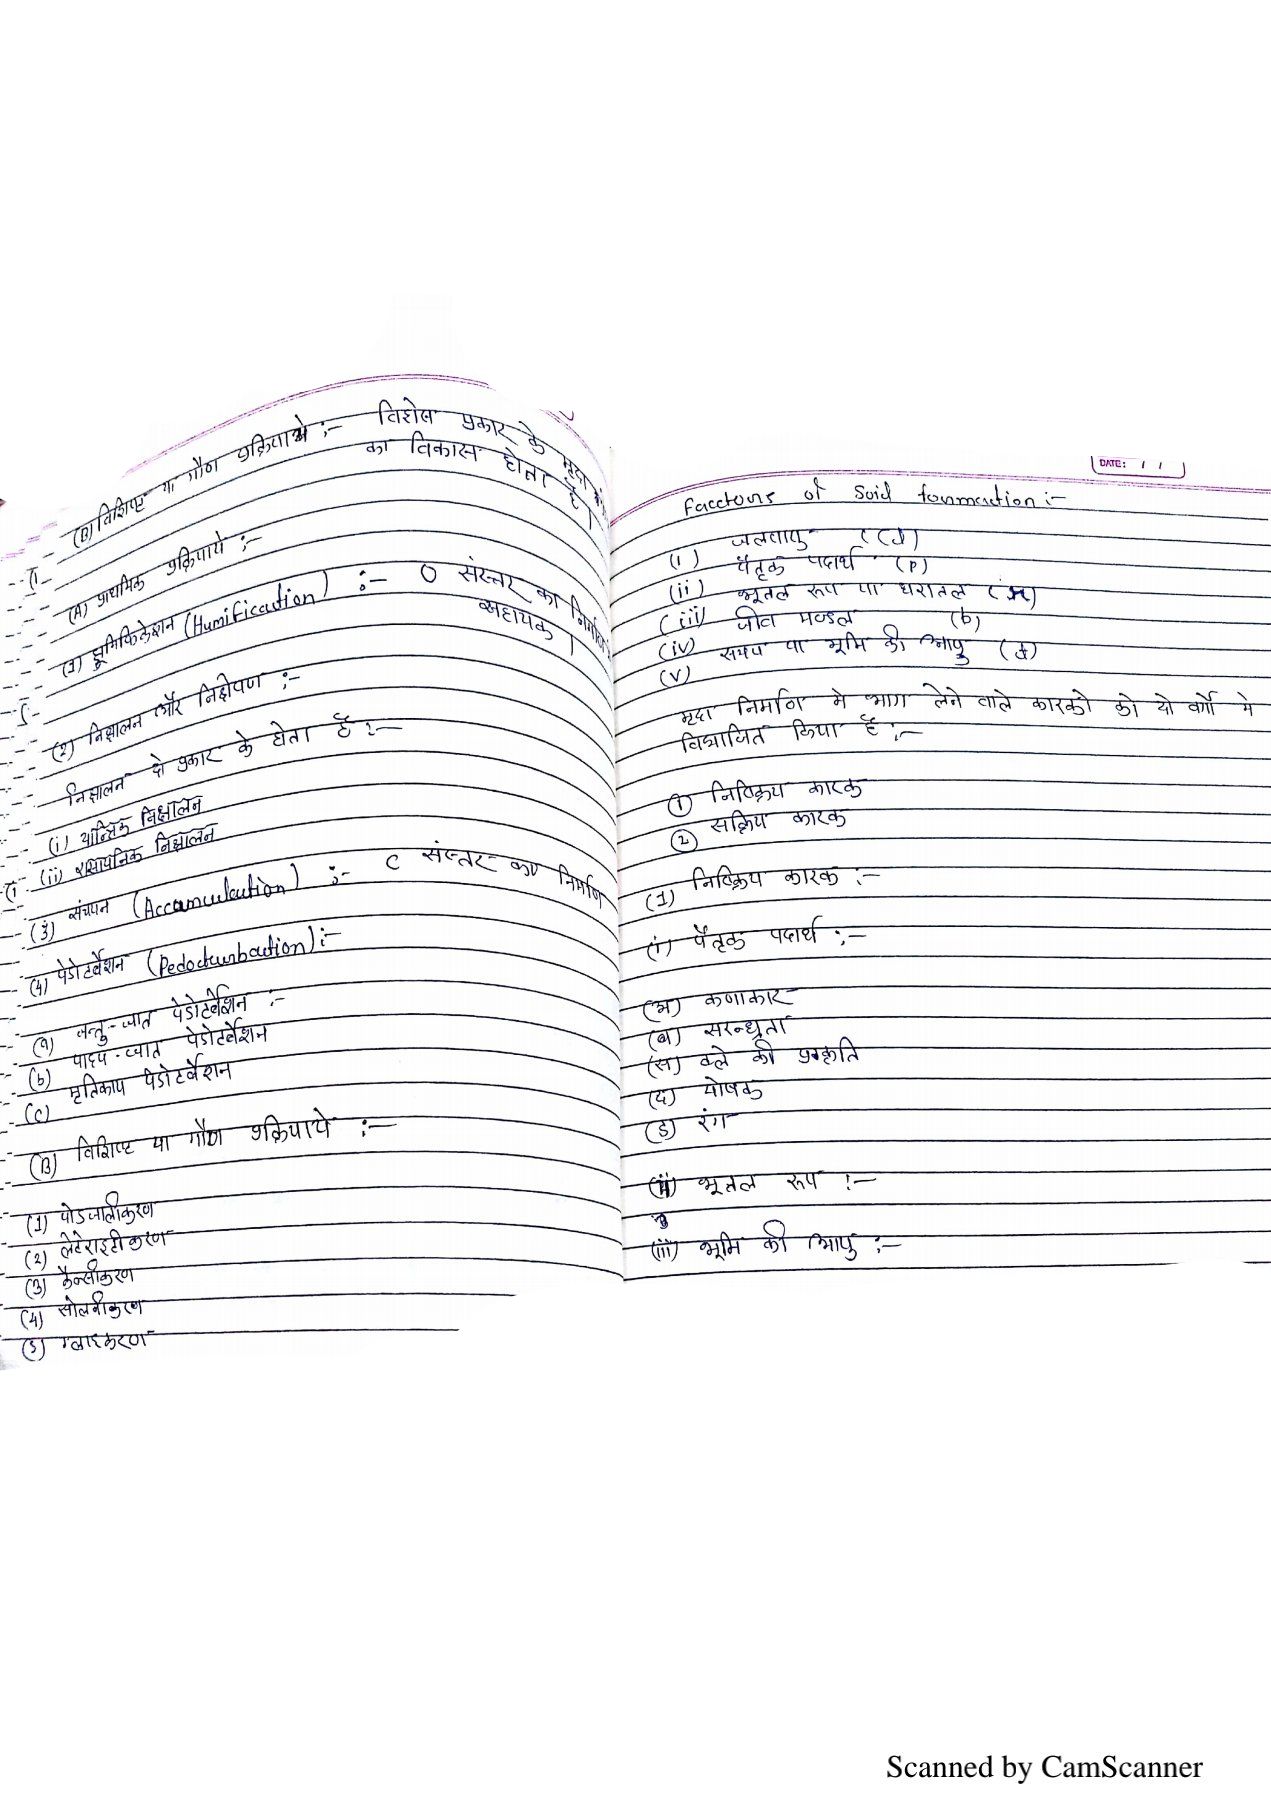 (B) विशिष्ट या गौण प्रक्रियाये :- विशेष प्रकार के मृदा
का विकास होता है।
(A) प्राथमिक प्रक्रियाये :-
(1) ह्यूमिफिकेशन (Humification) :- O संस्तर का निर्माण
सहायक।
(2) निक्षालन और निक्षेपण :-
निक्षालन दो प्रकार के होता है :-
(i) यान्त्रिक निक्षालन
(ii) रासायनिक निक्षालन
(3) संचयन (Accamulation) :- C संस्तर का निर्माण
(4) पेडोटर्बेशन (Pedoturbation) :-
(a) जन्तु-जात पेडोटर्बेशन :-
(b) पादप-जात पेडोटर्बेशन
(c) मृतिकाय पेडोटर्बेशन
(B) विशिष्ट या गौण प्रक्रियाये :-
(1) पोडजालीकरण
(2) लेटेराइटीकरण
(3) कैल्सीकरण
(4) सोलनीकरण
(5) ग्लाइकरण
DATE: / /
Facctors of Soid formation :-
(i) जलवायु (cl)
(ii) पैतृक पदार्थ (P)
(iii) भूतल रूप या धरातल (r)
(iv) जीव मण्डल (b)
(v) समय या भूमि की आयु (t)
मृदा निर्माण मे भाग लेने वाले कारको को दो वर्गो मे
विभाजित किया है :-
① निष्क्रिय कारक
② सक्रिय कारक
(1) निष्क्रिय कारक :-
(i) पैतृक पदार्थ :-
(अ) कणाकार
(ब) सरन्ध्रता
(स) वले की प्रकृति
(द) पोषक
(ड) रंग
(ii) भूतल रूप :-
(iii) भूमि की आयु :-
Scanned by CamScanner